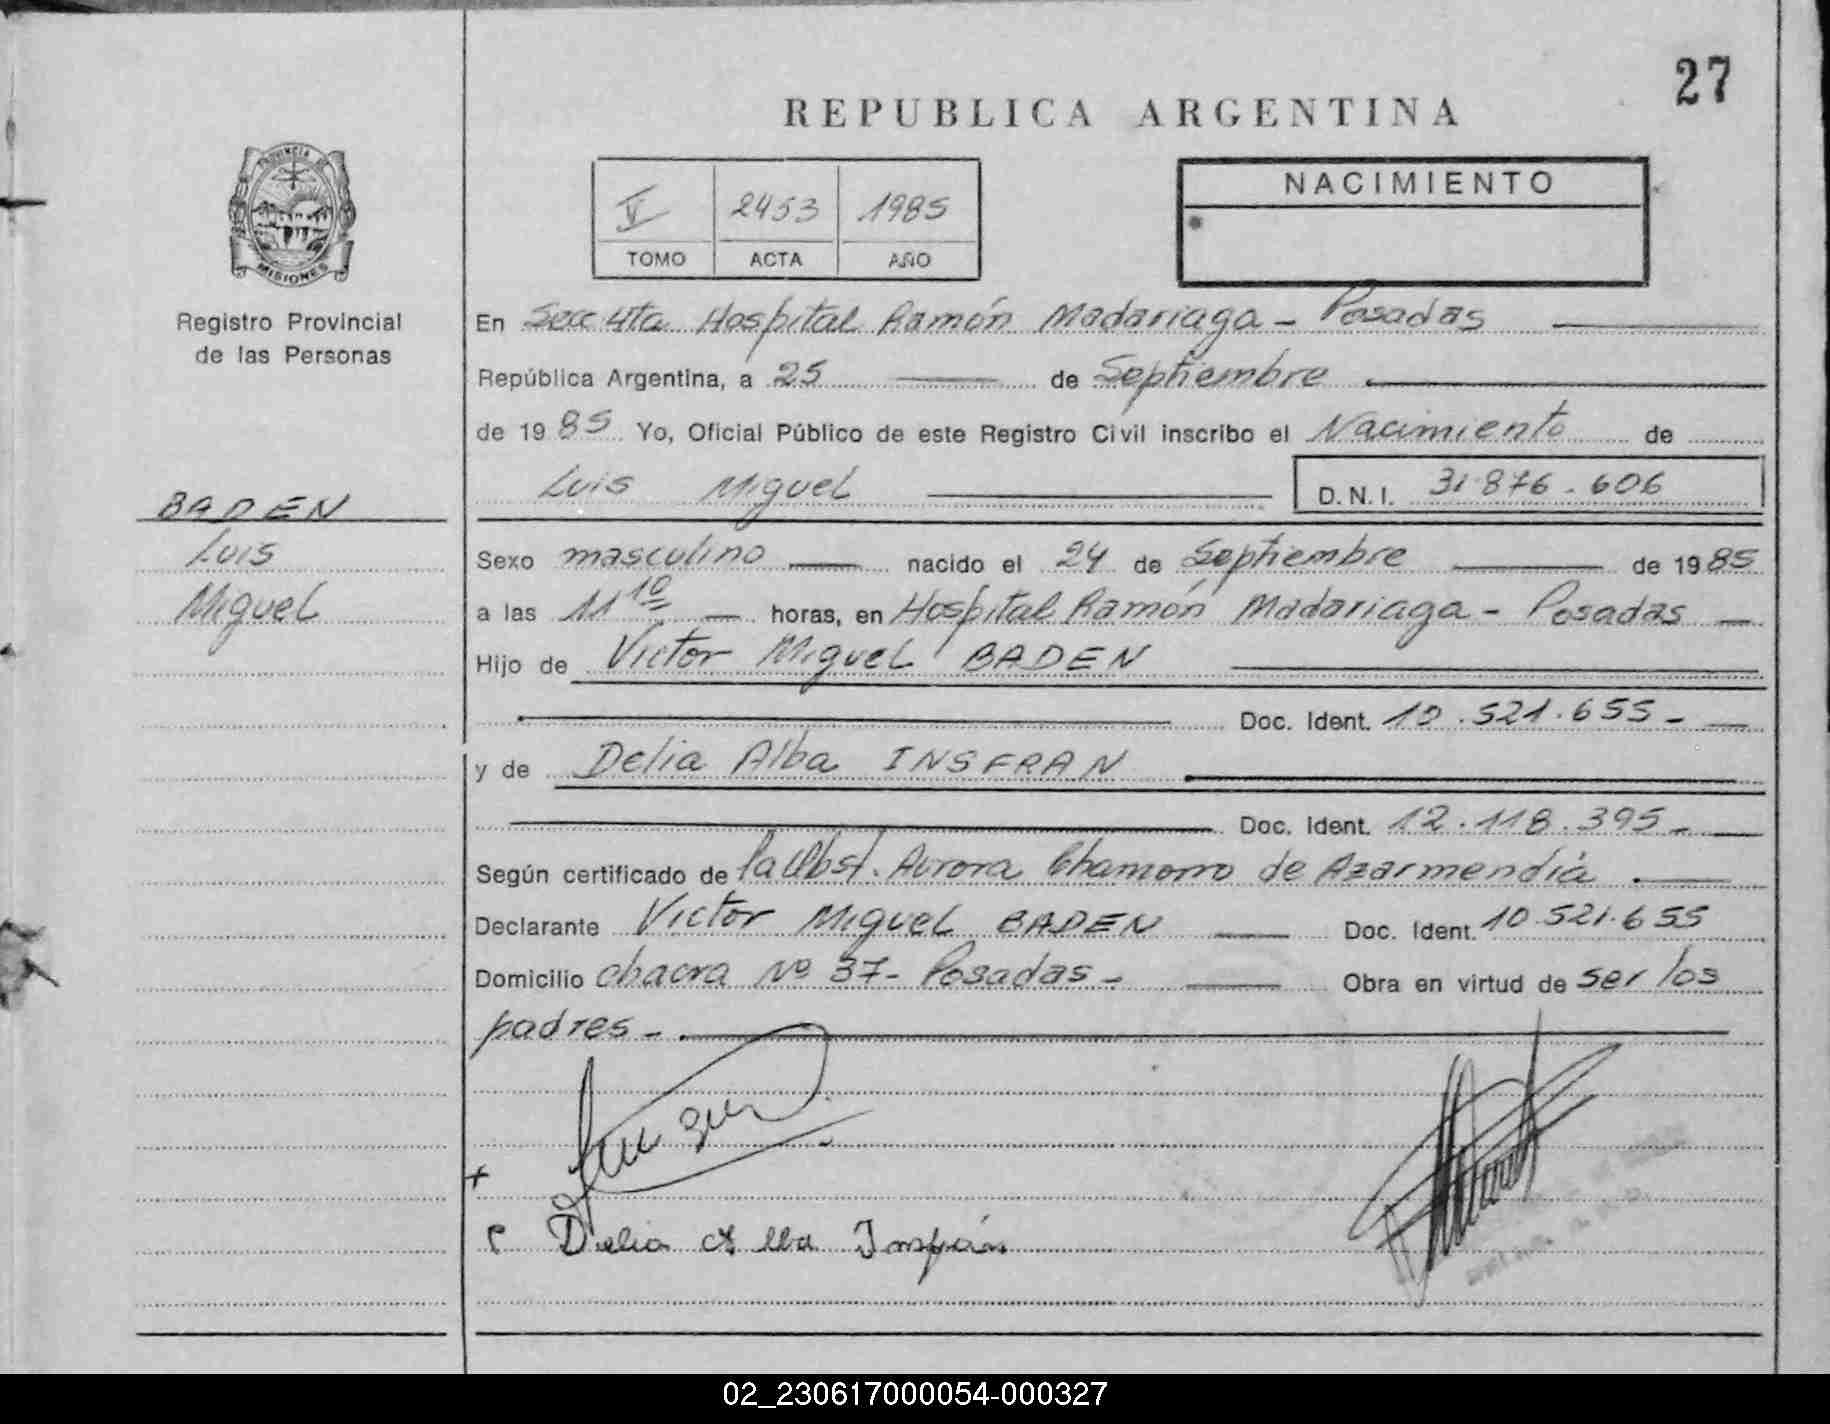 27
REPUBLICA ARGENTINA
PROVINCIA DE
MISIONES
V 2453 1985
TOMO ACTA AÑO
NACIMIENTO
Registro Provincial
de las Personas
En Secc 4ta Hospital Ramón Madariaga - Posadas
República Argentina, a 25 de Septiembre
de 1985 Yo, Oficial Público de este Registro Civil inscribo el Nacimiento de
Luis Miguel D.N.I. 31.876.606
BADEN
Luis
Miguel
Sexo masculino nacido el 24 de Septiembre de 1985
a las 11 10 horas, en Hospital Ramón Madariaga - Posadas
Hijo de Victor Miguel BADEN
Doc. Ident. 10.521.655-
y de Delia Alba INSFRAN
Doc. Ident. 12.118.395-
Según certificado de la Obst. Aurora Chamorro de Azarmendia
Declarante Victor Miguel BADEN Doc. Ident. 10.521.655
Domicilio chacra Nº 37- Posadas- Obra en virtud de ser los
padres-
Delia Alba Insfrán
02_230617000054-000327